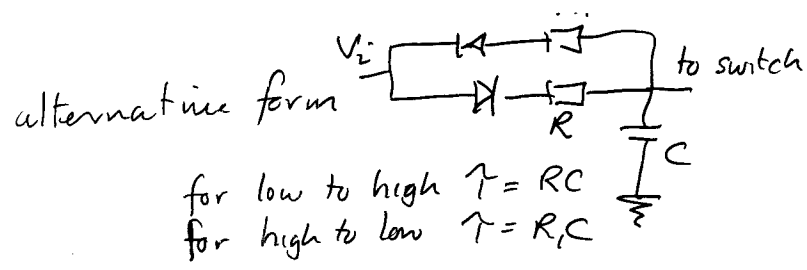 Vi
to switch
alternative form
R
C
for low to high τ = RC
for high to low τ = R₁C